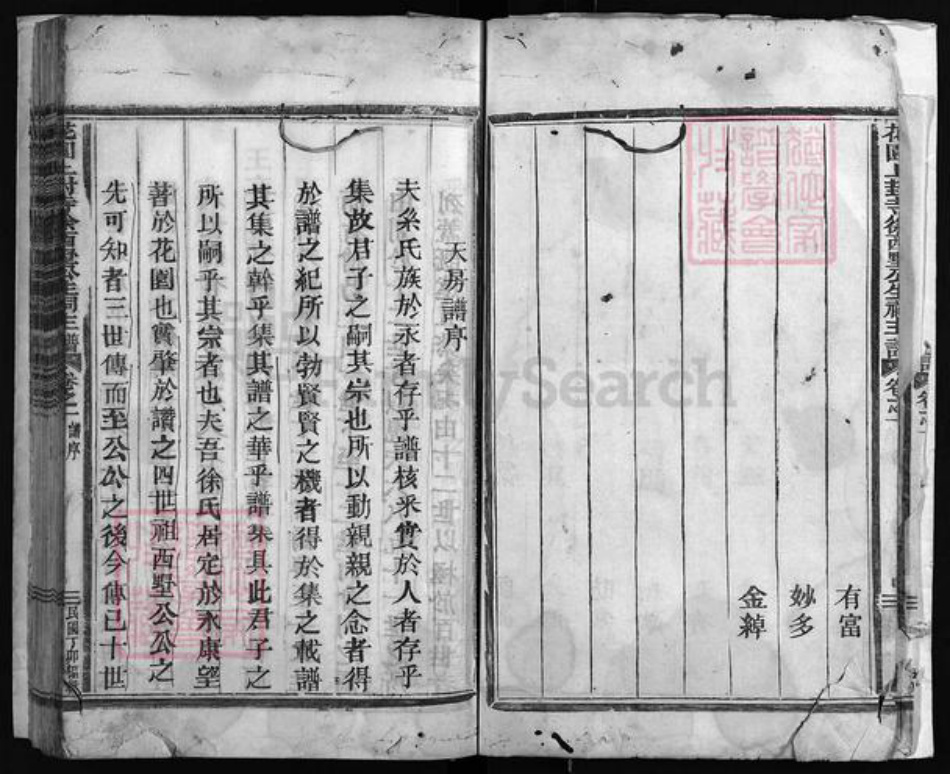 花園上封寺徐西墅公生祠主譜
卷之一
有富
妙多
金綽
天房譜序
夫糸氏族於永者存乎譜核釆實於人者存乎
集故君子之嗣其崇也所以動親親之念者得
於譜之紀所以勃賢賢之機者得於集之載譜
其集之幹乎集其譜之華乎譜集具此君子之
所以嗣乎其崇者也夫吾徐氏居定於永康望
著於花園也實肇於讚之四世祖西墅公公之
先可知者三世傳而至公公之後今傳已十世
卷之一
譜序
民國丁卯
FamilySearch